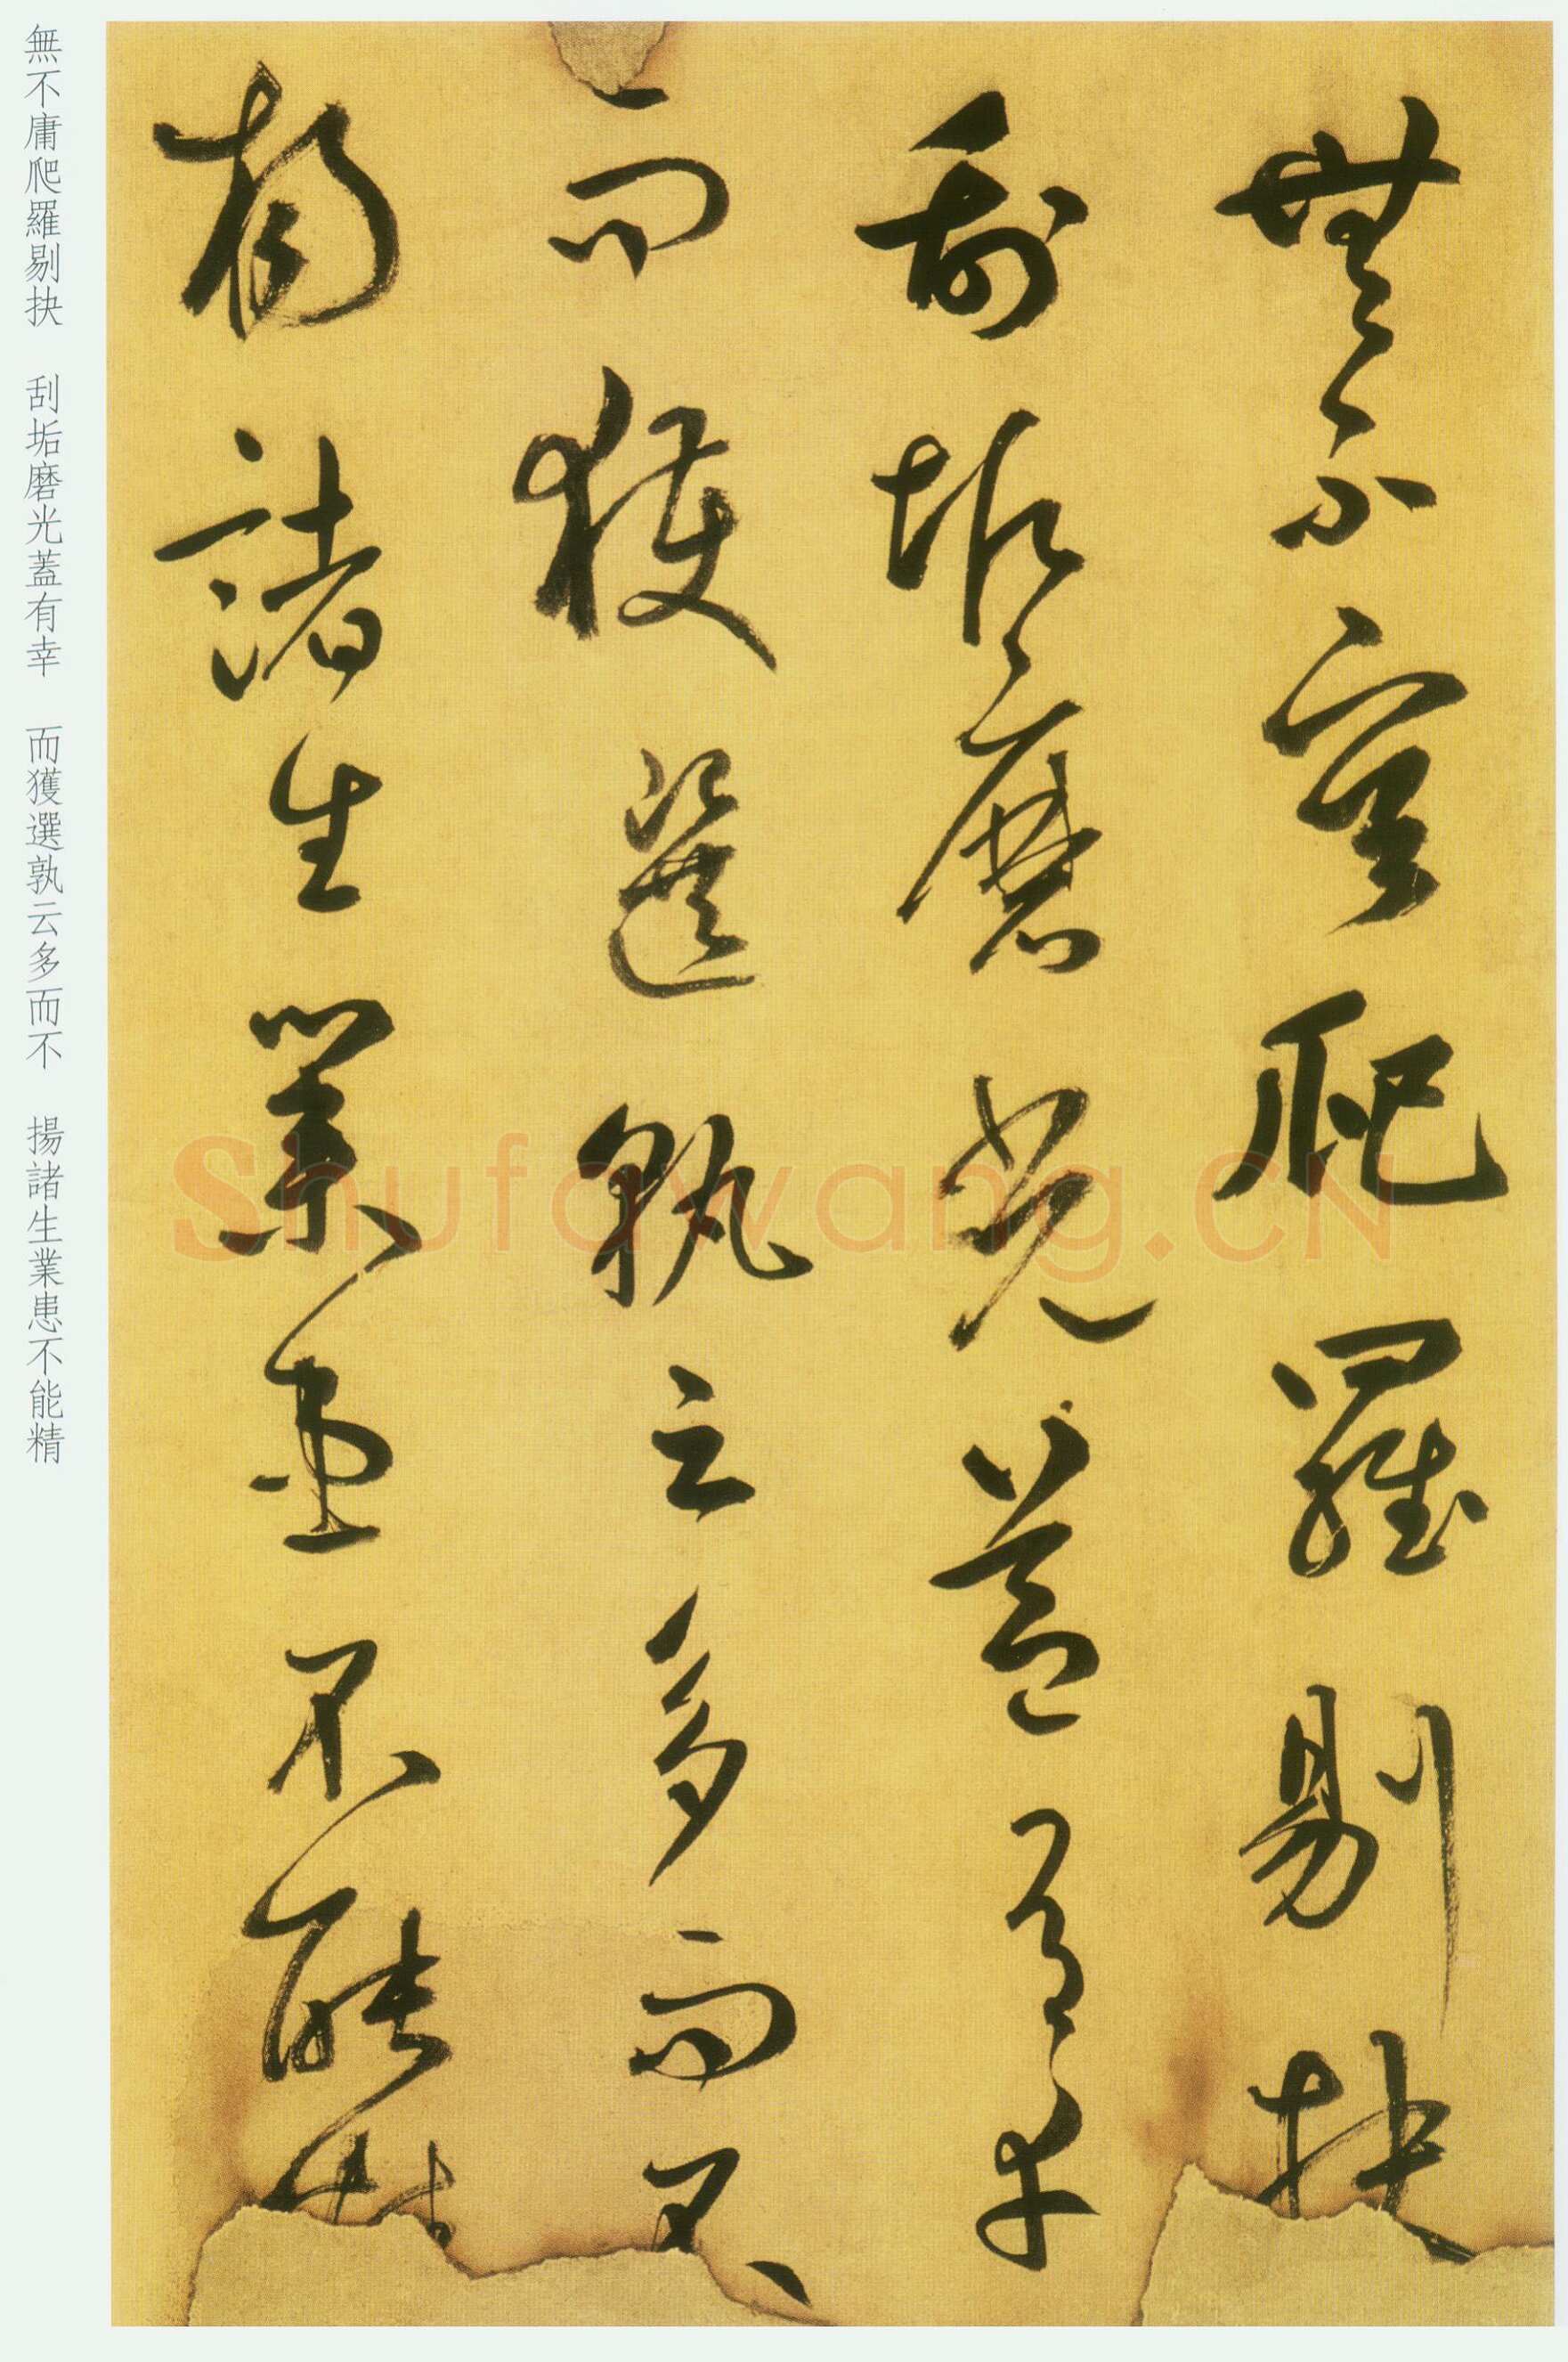 無不庸爬羅剔抉
刮垢磨光蓋有幸
而獲選孰云多而不
揚諸生業患不能精
無不庸爬羅剔抉　刮垢磨光蓋有幸　而獲選孰云多而不　揚諸生業患不能精
Shufawang.CN